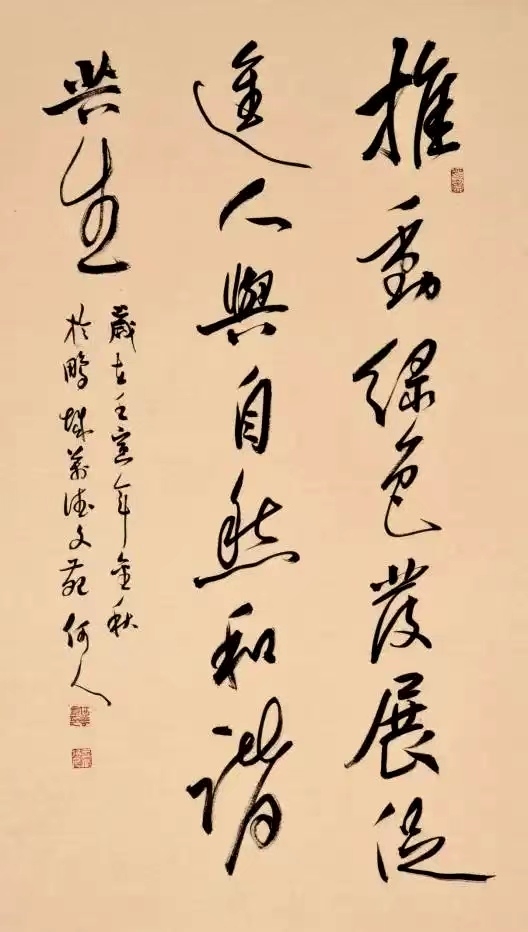 推動綠色發展促
進人與自然和諧
共生
歲在壬寅年金秋
於鵬城萬德文苑何人